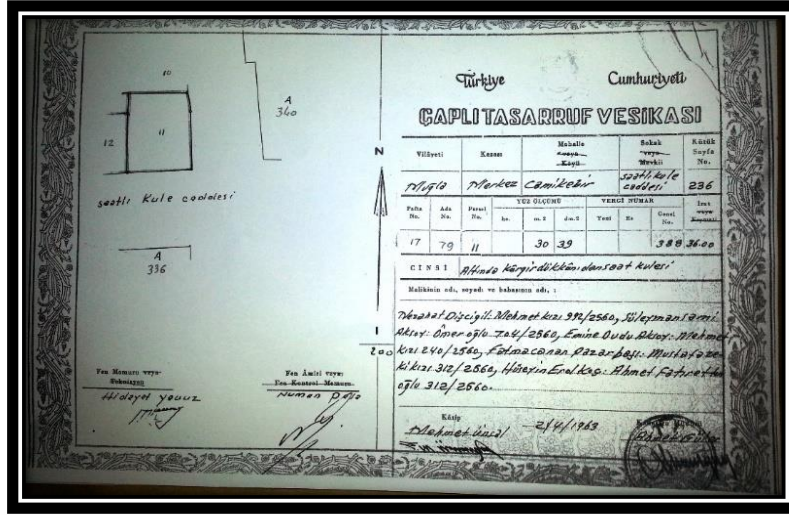 10
A
340
12
11
saatli Kule caddesi
A
336
N
1
200
Fen Memuru veya
Hidayet yavuz
Fen Âmiri veya
Fen Kontrol Memuru
Numan
Türkiye Cumhuriyeti
ÇAPLI TASARRUF VESİKASI
Vilâyeti Kazası Mahalle veya Köyü Sokak veya Mevkii Kütük Sayfa No.
Muğla Merkez Camikebir saatli kule caddesi 236
Pafta No. Ada No. Parsel No. YÜZ ÖLÇÜMÜ VERGİ NUMAR İrat veya
ha. m.2 dm.2 Yeni Es Genel No.
17 79 11 30 39 388 3600
CİNSİ Altında kârgir dükkânı olan saat kulesi
Malikinin adı, soyadı ve babasının adı, :
Nezahat Dişçigil: Mehmet kızı 992/2560, Süleyman Sami
Aksoy: Ömer oğlu 704/2560, Emine Dudu Aksoy: Mehmet
kızı 240/2560, Fatma canan pazarbaşı: Mustafa ze-
ki kızı 312/2560, Hüseyin Erol Koç: Ahmet
oğlu 312/2560.
Kâtip
Mehmet Ünsal 2/4/1963